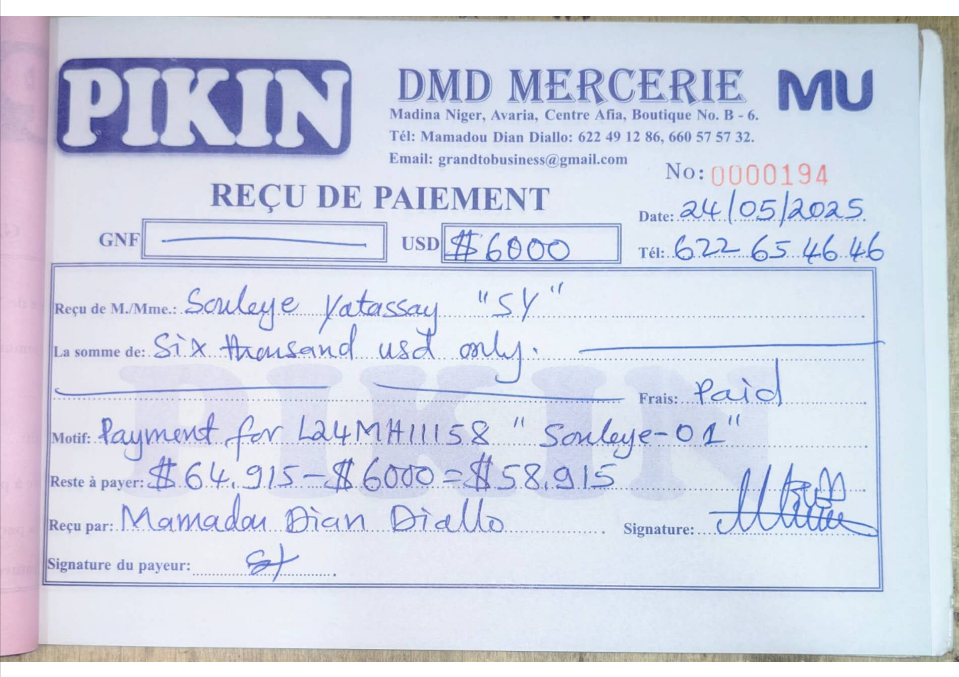 PIKIN
DMD MERCERIE
MU
Madina Niger, Avaria, Centre Afia, Boutique No. B - 6.
Tél: Mamadou Dian Diallo: 622 49 12 86, 660 57 57 32.
Email: grandtobusiness@gmail.com
No: 0000194
REÇU DE PAIEMENT
Date: 24/05/2025
GNF
USD $6000
Tél: 622 65 46 46
Reçu de M./Mme.: Souleye Yatassay "SY"
La somme de: Six thousand usd only.
Frais: Paid
Motif: Payment for L24MH11158 "Souleye-01"
Reste à payer: $64,915-$6000=$58,915
Reçu par: Mamadou Dian Diallo
Signature:
Signature du payeur:
PIKIN